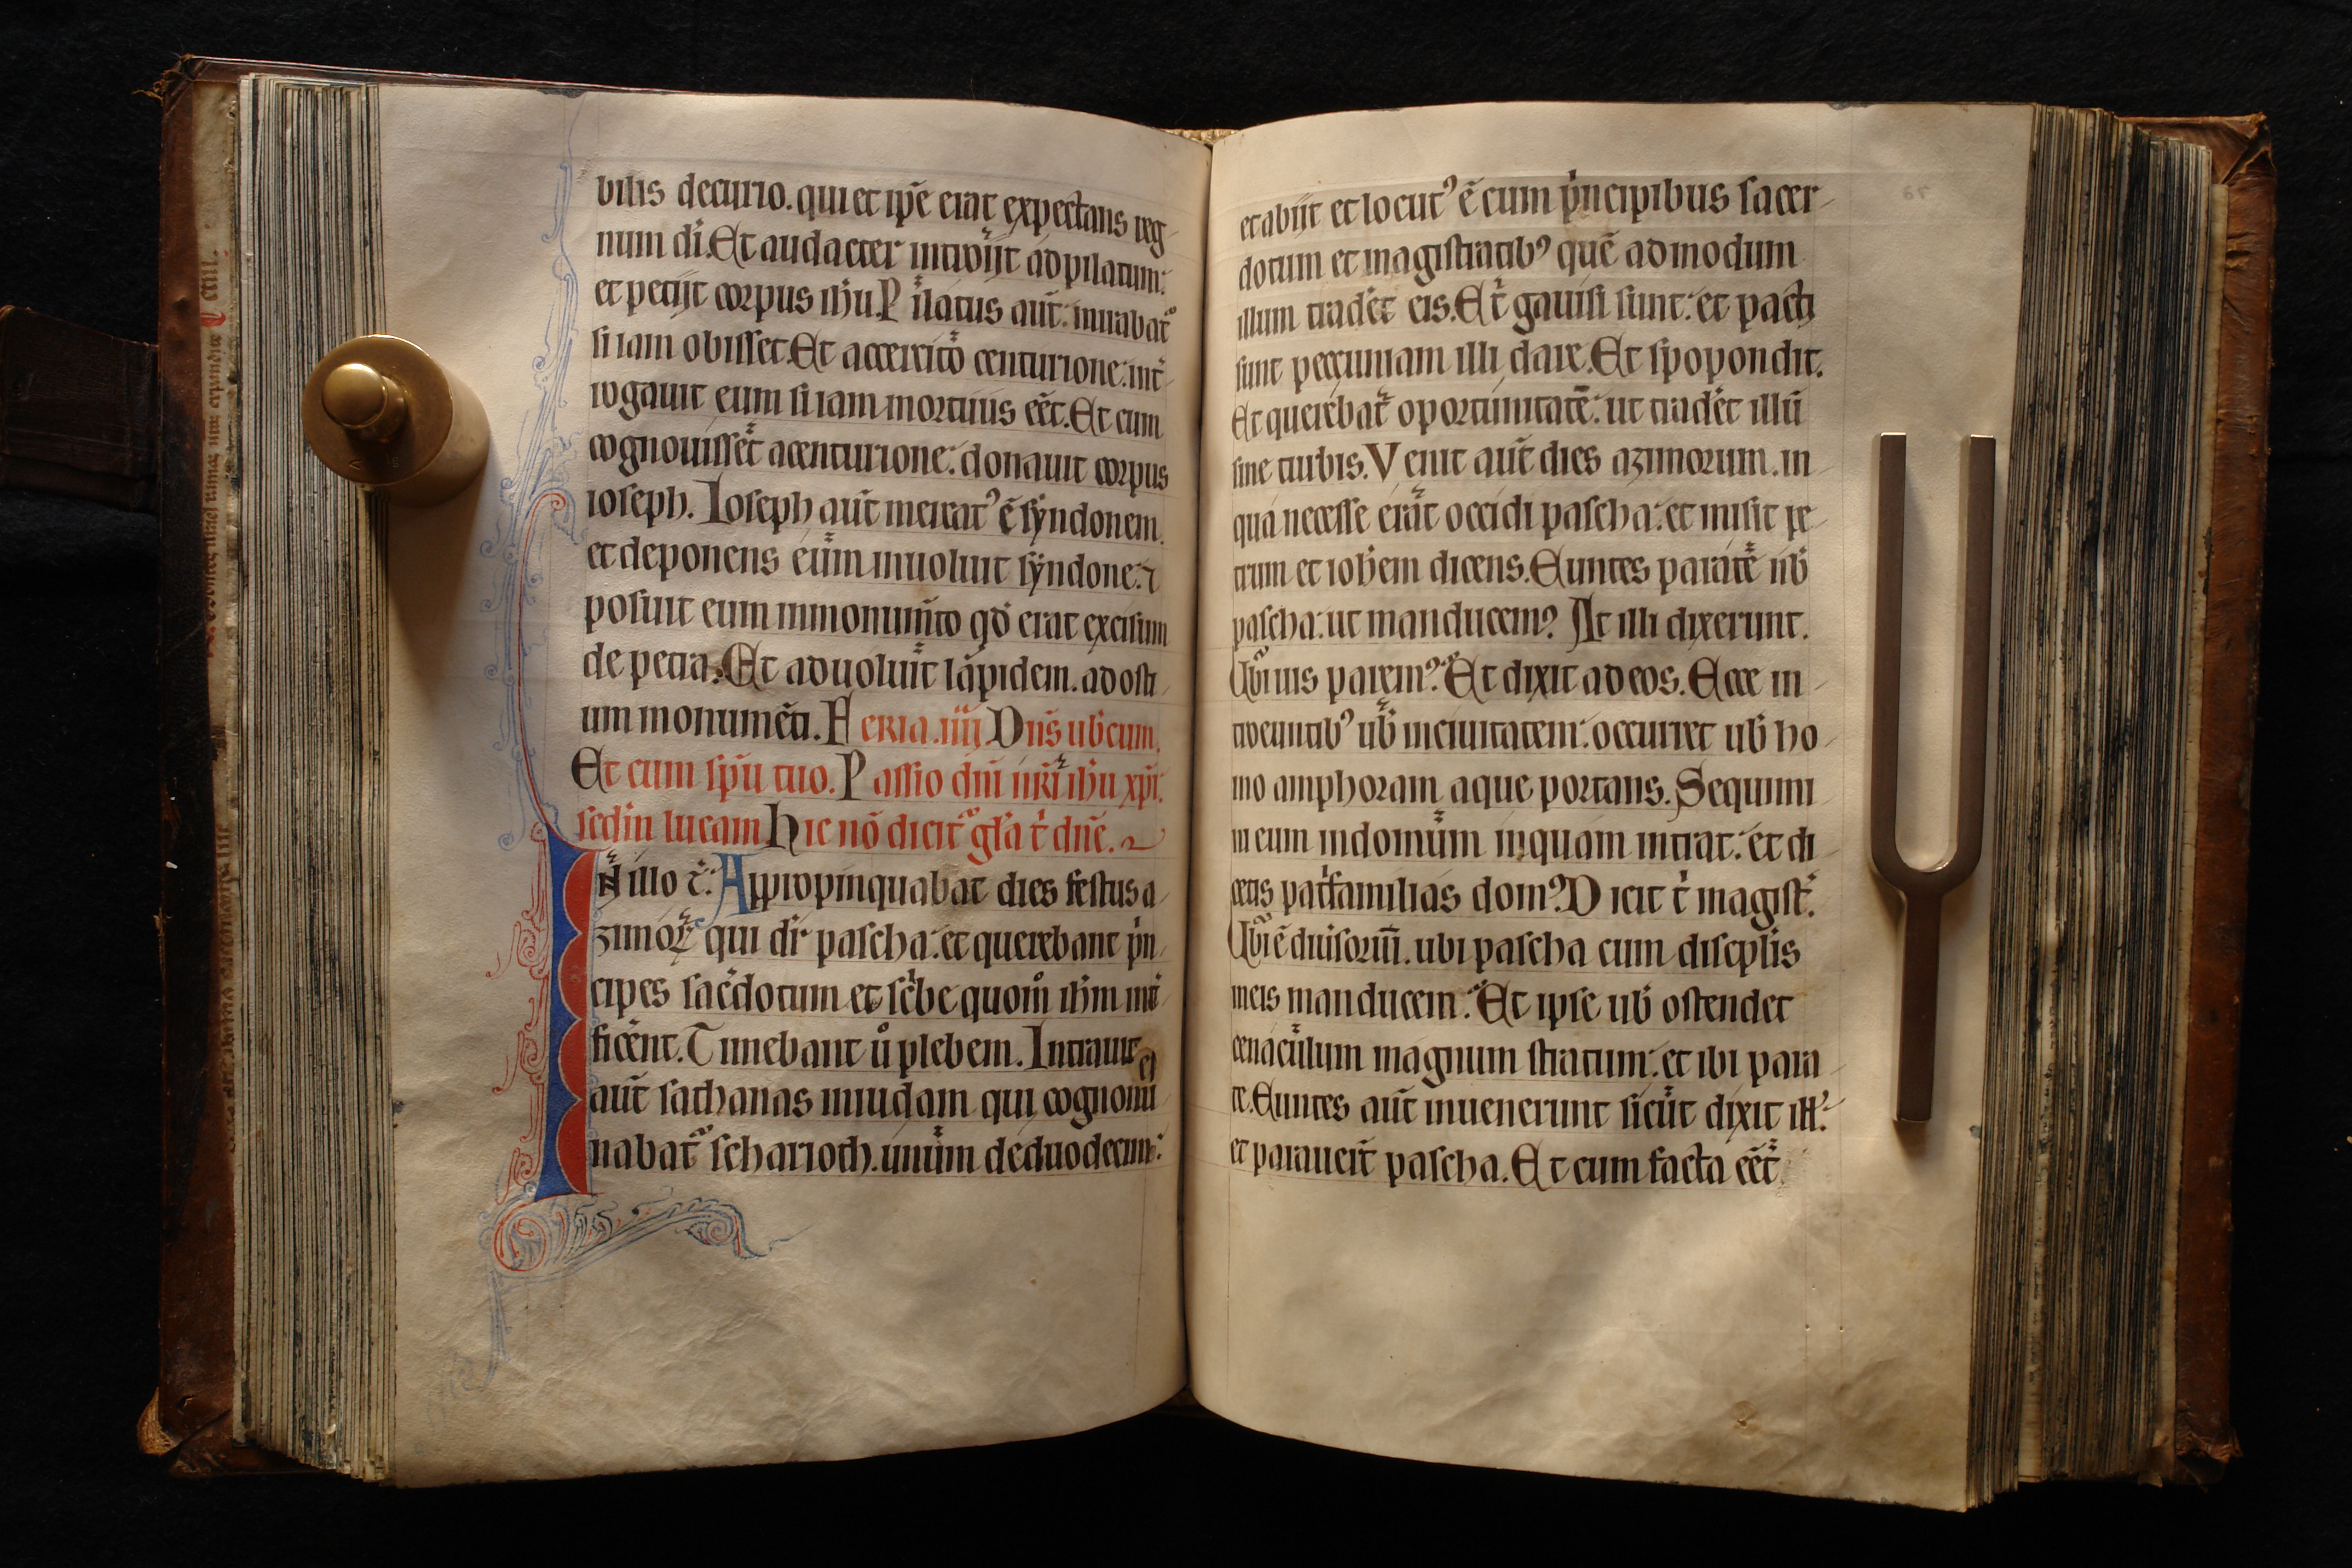 bilis decurio. qui et ip̄e erat expectans reg-
num di. Et audacter introijt ad pilatum:
et petijt corpus ihu. Pilatus aut̄: mirabat᷑
si iam obisset. Et accersito centurione: int̄-
rogauit eum si iam mortuus eēt. Et cum
cognouisset a centurione: donauit corpus
ioseph. Ioseph aut̄ mercatꝰ ē syndonem.
et deponens eum inuoluit syndone: ⁊
posuit eum in monum̄to qd̓ erat excisum
de petra. Et aduoluit lapidem. ad osti-
um monumēti. Feria .iiij. Dn̄s ub̓cum.
Et cum sp̄u tuo. Passio dn̄i nr̄i ih̄u xp̄i.
scd̓m lucam Hic nō dicit᷑ gl̓a t̓ dn̄e.
IN illo t̓: Appropinquabat dies festus a-
zimoꝝ qui dr̄ pascha: et querebant p̓n-
cipes sac̓dotum et sc̓be quom̊ ih̄m int̓-
ficēnt. Timebant ů plebem. Intrauit
aut̄ sathanas in iudam qui cognomi
nabat᷑ scharioth. unum de duodecim:
et abijt et locutꝰ ē cum p̓ncipibus sacer-
dotum et magistratibꝰ quē admodum
illum trad̓et eis. Et gauisi sunt: et pacti
sunt peccuniam illi dare. Et spopondit.
Et querebat oportunitatē: ut trad̓et illū
sine turbis. Venit aut̄ dies azimorum. in-
qua necesse erat occidi pascha: et misit pe-
trum et ioh̓em dicens. Euntes parate nb̓
pascha: ut manducem? At illi dixerunt.
Ubi uis parem? Et dixit ad eos. Ecce in-
troeuntibꝰ ub̓ in ciuitatem: occurret ub̓ ho-
mo amphoram aque portans. Sequimi
ni eum in domum in quam intrat: et di-
cetis pat̓familias dom? Dicit t̓ magist̓.
Ubi ē diuisoriū. ubi pascha cum discip̄lis
meis manducem? Et ipse ub̓ ostendet
cenaculum magnum stratum: et ibi para-
te. Euntes aut̄ inuenerunt sicut dixit ill̓:
et parauer̄t pascha. Et cum facta eēt